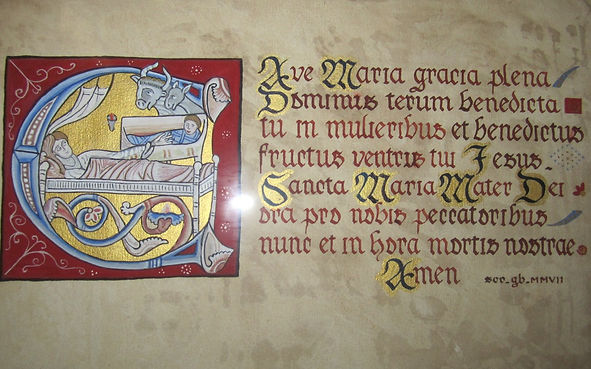 Ave Maria gracia plena
Dominus terum benedicta
tu in mulieribus et benedictus
fructus ventris tui Jesus.
Sancta Maria Mater Dei
ora pro nobis peccatoribus
nunc et in hora mortis nostrae
Amen
scr_gb_MMVII